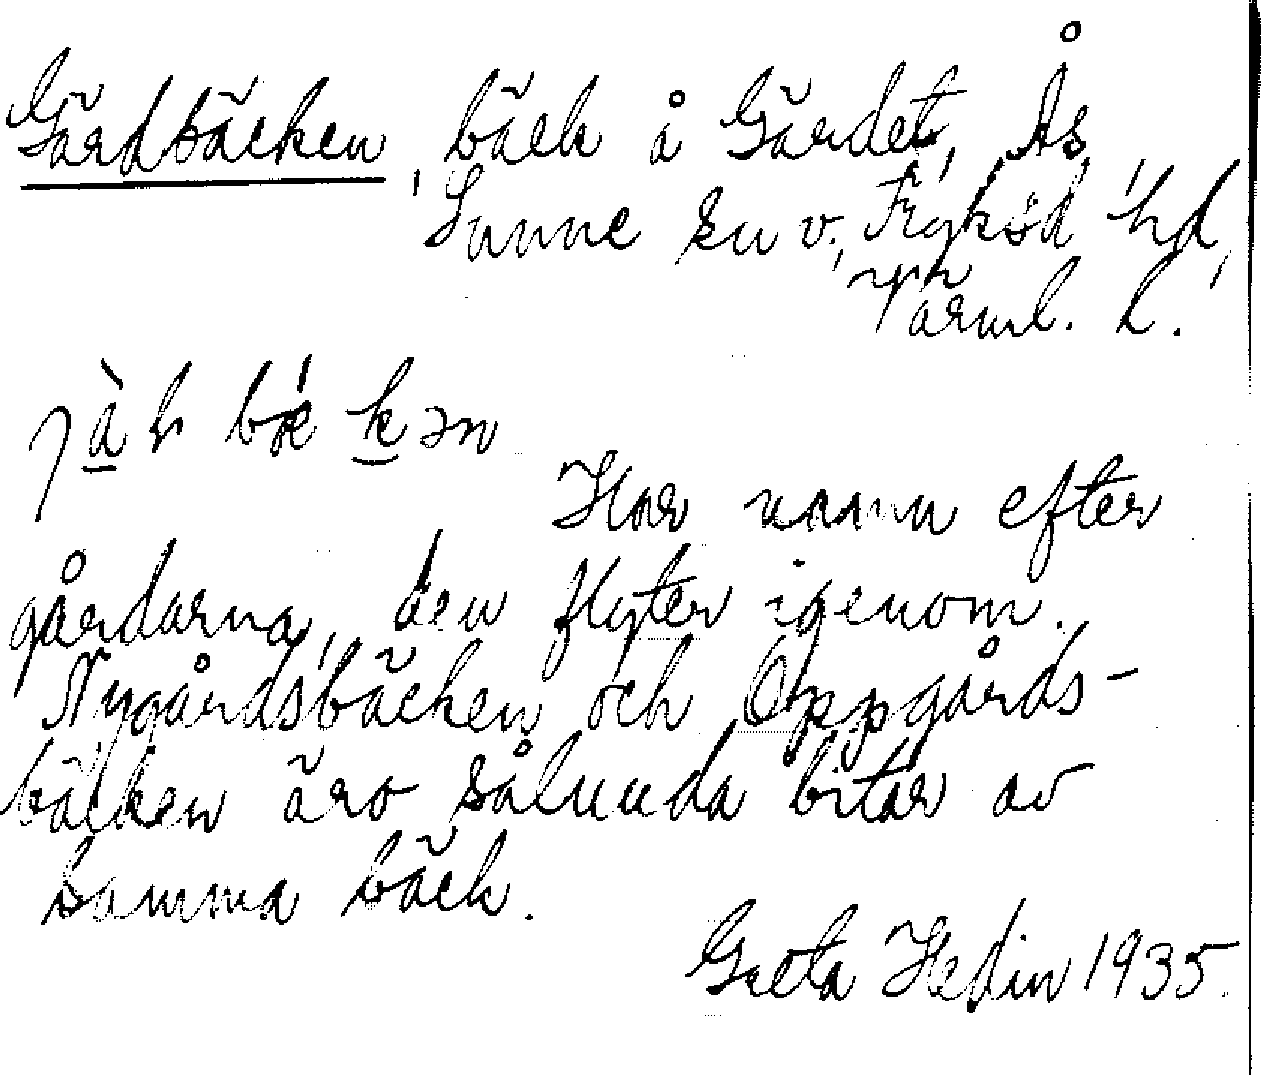 Gärdbäcken, bäck å Gärdet, Ås
Sunne sn v., Fryksd. hd,
Värml. l.
bǽkən
Har namn efter
gårdarna, den flyter igenom.
Nygårdsbäcken och Oppgårds-
bäcken äro sålunda bitar av
samma bäck.
Greta Hedin 1935.